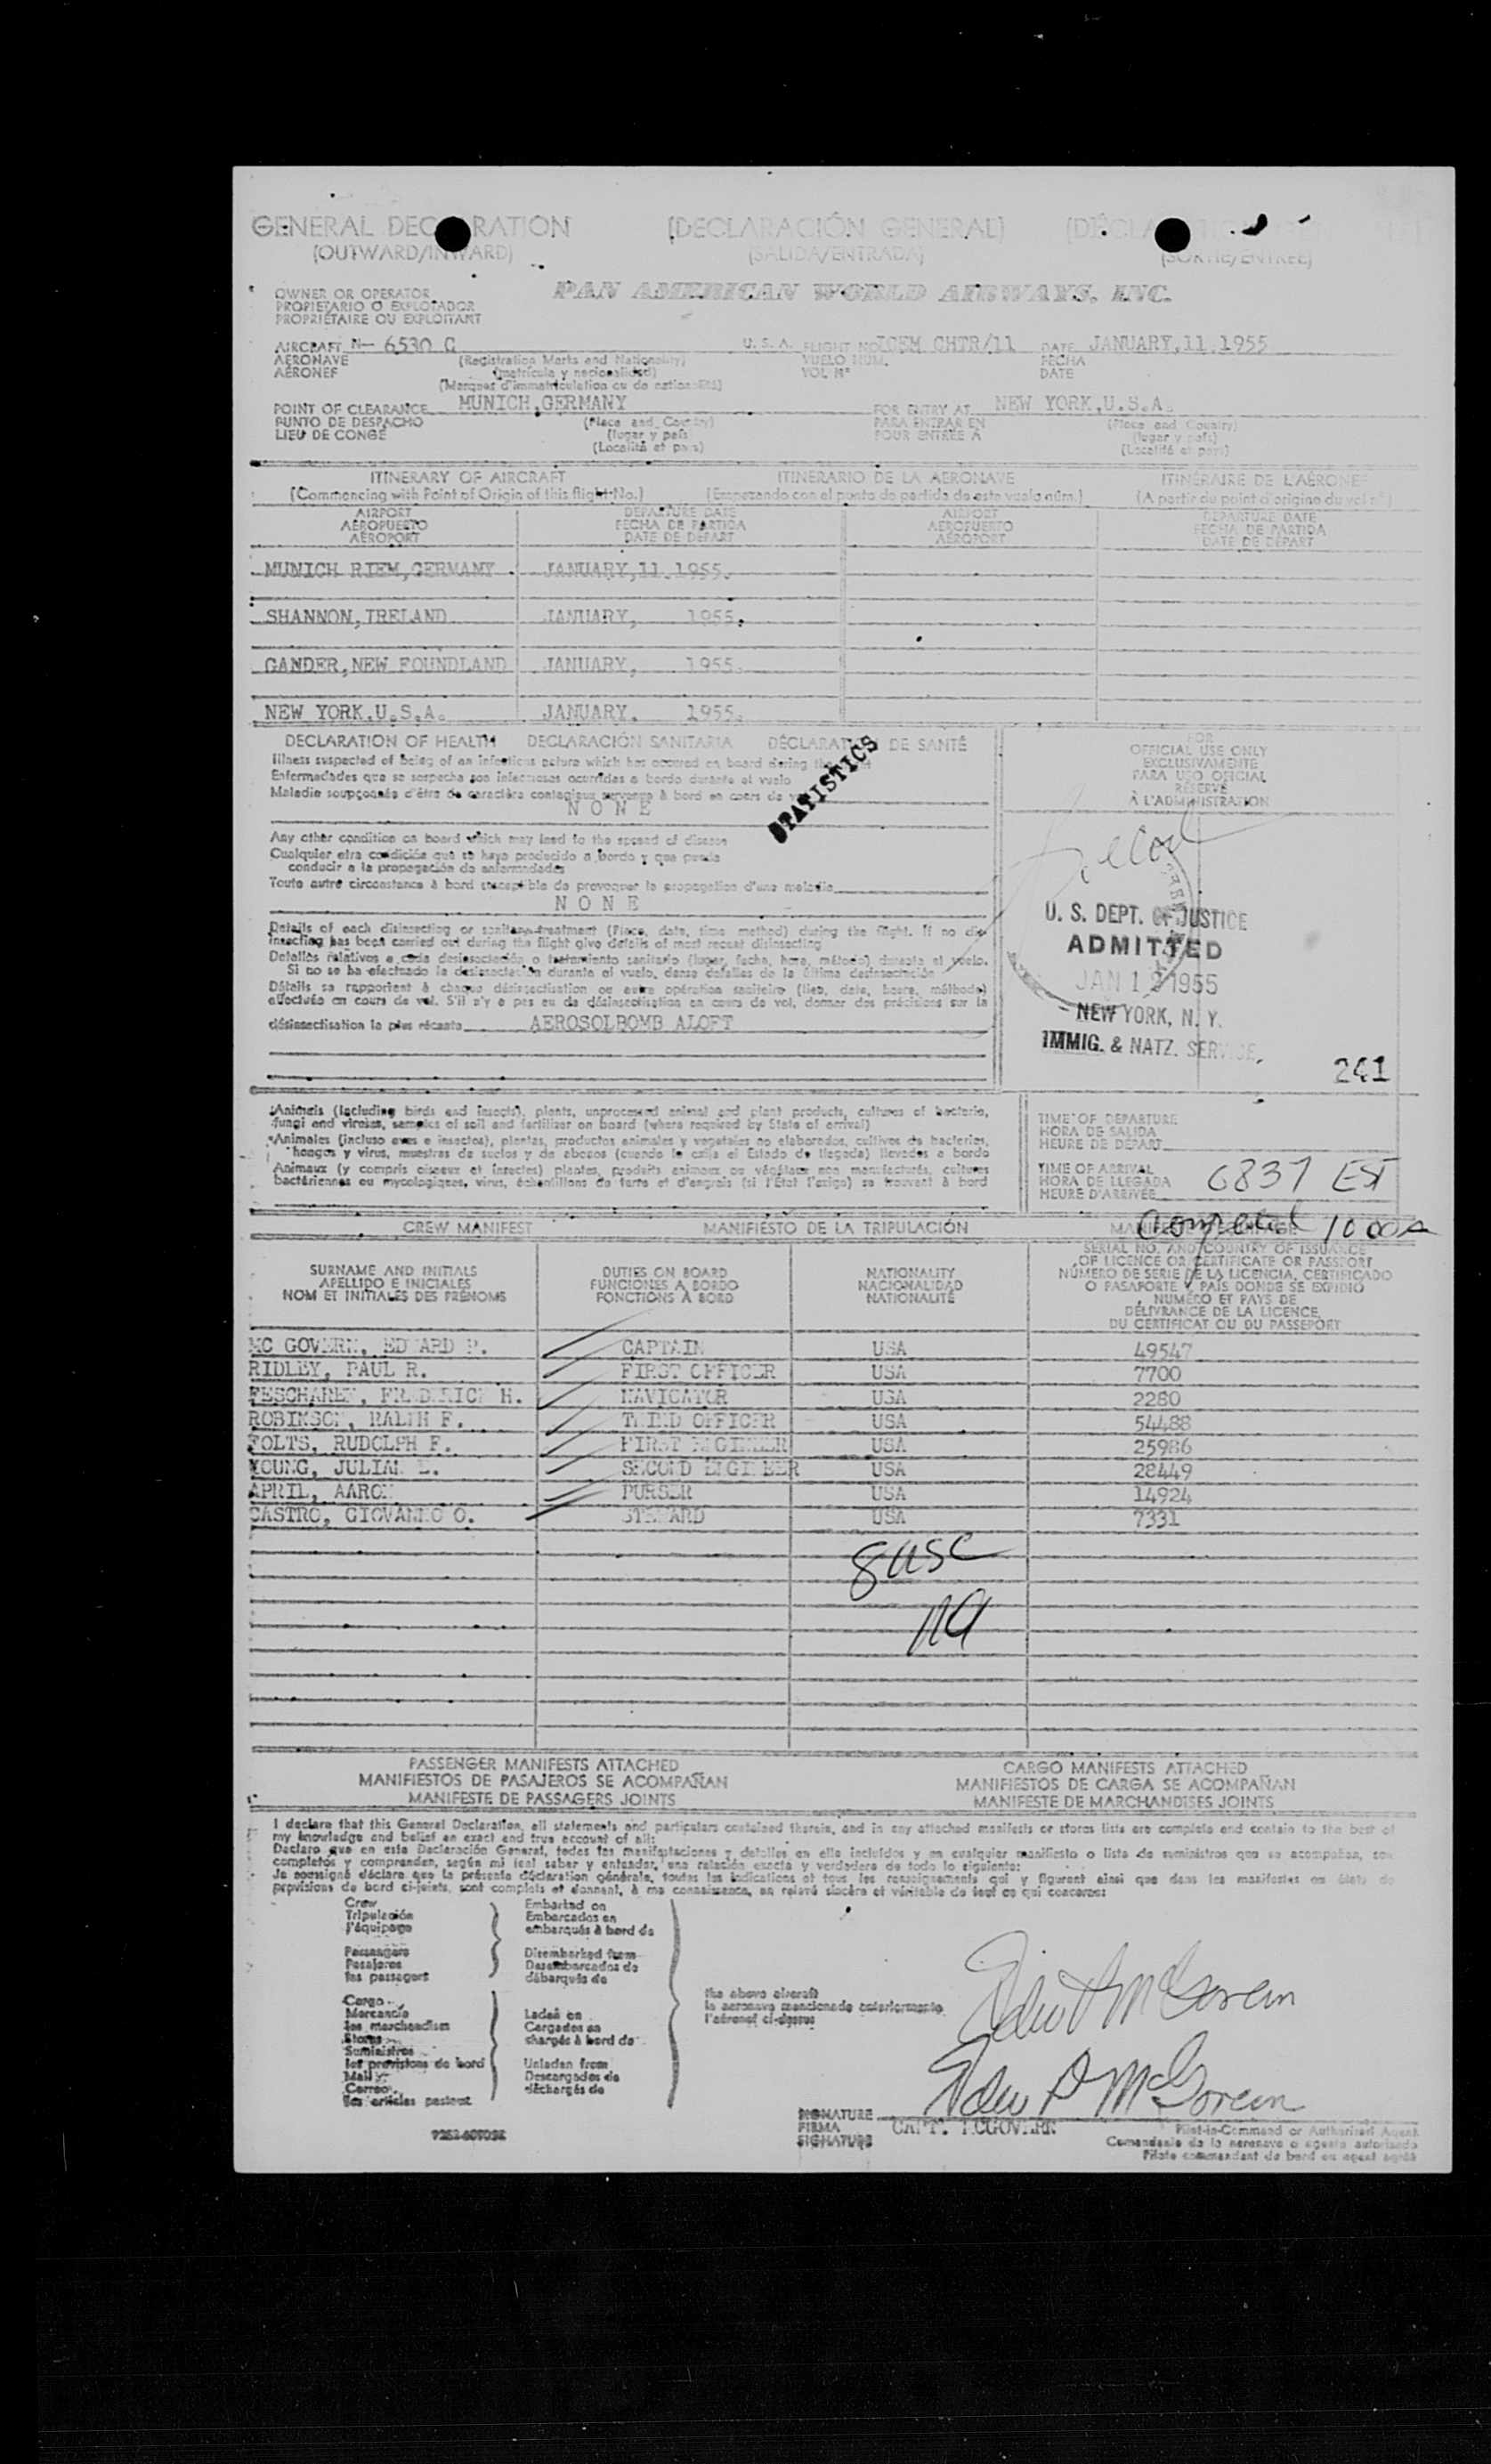 GENERAL DEC RATION (DECLARACIÓN GENERAL)
(OUTWARD/INWARD) (SALIDA/ENTRADA) (SORTIE/ENTREE)
OWNER OR OPERATOR PAN AMERICAN WORLD AIRWAYS, INC.
PROPIETARIO O EXPLOTADOR
PROPRIÉTAIRE OU EXPLOITANT
AIRCRAFT N- 6530 C U. S. A. FLIGHT NO ICEM CHTR/11 DATE JANUARY,11.1955
AERONAVE (Registration Marks and Nationality) VUELO NUM. FECHA
AÉRONEF (matrícula y nacionalidad) VOL Nº DATE
(Marques d'immatriculation ou de nationalité)
POINT OF CLEARANCE MUNICH,GERMANY FOR ENTRY AT NEW YORK,U.S.A.
PUNTO DE DESPACHO (Place and Country) PARA ENTRAR EN (Place and Country)
LIEU DE CONGÉ (lugar y país) POUR ENTRÉE A (lugar y país)
(Localité et pays) (Localité et pays)
ITINERARY OF AIRCRAFT ITINERARIO DE LA AERONAVE ITINÉRAIRE DE L'AÉRONEF
(Commencing with Point of Origin of this flight No.) (Empezando con el punto de partida de este vuelo núm.) (A partir du point d'origine du vol nº)
AIRPORT DEPARTURE DATE AIRPORT DEPARTURE DATE
AEROPUERTO FECHA DE PARTIDA AEROPUERTO FECHA DE PARTIDA
AÉROPORT DATE DE DÉPART AÉROPORT DATE DE DÉPART
MUNICH RIEM,GERMANY JANUARY,11.1955.
SHANNON,IRELAND JANUARY, 1955.
GANDER,NEW FOUNDLAND JANUARY, 1955.
NEW YORK.U.S.A. JANUARY. 1955.
DECLARATION OF HEALTH DECLARACIÓN SANITARIA DÉCLARATION DE SANTÉ
STATISTICS
Illness suspected of being of an infectious nature which has occured on board during the
Enfermedades que se sospecha son infecciosas ocurridas a bordo durante el vuelo
Maladie soupçonnée d'être de caractère contagieux survenue à bord en cours de
N O N E
Any other condition on board which may lead to the spread of disease
Cualquier otra condición que se haya producido a bordo y que pueda
conducir a la propagación de enfermedades
Toute autre circonstance à bord susceptible de provoquer la propagation d'une maladie
N O N E
Details of each disinsecting or sanitary treatment (Place, date, time method) during the flight. If no dis-
insecting has been carried out during the flight give details of most recent disinsecting
Detalles relativos a cada desinsectación o tratamiento sanitario (lugar, fecha, hora, método) durante el vuelo.
Si no se ha efectuado la desinsectación durante el vuelo, dense detalles de la última desinsectación
Détails se rapportant à chaque désinsectisation ou autre opération sanitaire (lieu, date, heure, méthode)
effectuée en cours de vol. S'il n'y a pas eu de désinsectisation en cours de vol, donner des précisions sur la
désinsectisation la plus récente AEROSOLBOMB ALOFT
FOR
OFFICIAL USE ONLY
EXCLUSIVAMENTE
PARA USO OFICIAL
RÉSERVÉ
À L'ADMINISTRATION
U. S. DEPT. OF JUSTICE
ADMITTED
JAN 12 1955
NEW YORK, N. Y.
IMMIG. & NATZ. SERVICE.
241
Animals (including birds and insects), plants, unprocessed animal and plant products, cultures of bacteria,
fungi and viruses, samples of soil and fertilizer on board (where required by State of arrival)
Animales (incluso aves e insectos), plantas, productos animales y vegetales no elaborados, cultivos de bacterias,
hongos y virus, muestras de suelos y de abonos (cuando lo exija el Estado de llegada) llevados a bordo
Animaux (y compris oiseaux et insectes) plantes, produits animaux ou végétaux non manufacturés, cultures
bactériennes ou mycologiques, virus, échantillons de terre et d'engrais (si l'État l'exige) se trouvant à bord
TIME OF DEPARTURE
HORA DE SALIDA
HEURE DE DÉPART
TIME OF ARRIVAL
HORA DE LLEGADA 0837 EST
HEURE D'ARRIVÉE
Completed 1000A
CREW MANIFEST MANIFIESTO DE LA TRIPULACIÓN
SURNAME AND INITIALS DUTIES ON BOARD NATIONALITY SERIAL NO. AND COUNTRY OF ISSUANCE
APELLIDO E INICIALES FUNCIONES A BORDO NACIONALIDAD OF LICENCE OR CERTIFICATE OR PASSPORT
NOM ET INITIALES DES PRÉNOMS FONCTIONS À BORD NATIONALITÉ NÚMERO DE SERIE DE LA LICENCIA, CERTIFICADO
O PASAPORTE Y PAIS DONDE SE EXPIDIO
NUMÉRO ET PAYS DE
DÉLIVRANCE DE LA LICENCE,
DU CERTIFICAT OU DU PASSEPORT
MC GOVERN, EDWARD P. CAPTAIN USA 49547
RIDLEY, PAUL R. FIRST OFFICER USA 7700
FREDERICK H. NAVIGATOR USA 2280
ROBINSON, RALPH F. THIRD OFFICER USA 54488
FOLTS, RUDOLPH F. FIRST ENGINEER USA 25986
YOUNG, JULIAN SECOND ENGINEER USA 28449
APRIL, AARON PURSER USA 14924
CASTRO, GIOVANNO O. STEWARD USA 7331
8 USC
PASSENGER MANIFESTS ATTACHED CARGO MANIFESTS ATTACHED
MANIFIESTOS DE PASAJEROS SE ACOMPAÑAN MANIFIESTOS DE CARGA SE ACOMPAÑAN
MANIFESTE DE PASSAGERS JOINTS MANIFESTE DE MARCHANDISES JOINTS
I declare that this General Declaration, all statements and particulars contained therein, and in any attached manifests or stores lists are complete and contain to the best of
my knowledge and belief an exact and true account of all:
Declaro que en esta Declaración General, todas las manifestaciones y detalles en ella incluidos y en cualquier manifiesto o lista de suministros que se acompañan, son
completos y comprenden, según mi leal saber y entender, una relación exacta y verdadera de todo lo siguiente:
Je soussigné déclare que la présente déclaration générale, toutes les indications et tous les renseignements qui y figurent ainsi que dans les manifestes ou états de
provisions de bord ci-joints, sont complets et donnent, à ma connaissance, un relevé sincère et véritable de tout ce qui concerne:
Crew Embarked on
Tripulación Embarcados en
l'équipage embarqués à bord de
Passengers Disembarked from
Pasajeros Desembarcados de
les passagers débarqués de
the above aircraft
la aeronave mencionada anteriormente
l'aéronef ci-dessus
Cargo
Mercancía Laden on
les marchandises Cargados en
Stores chargés à bord de
Suministros
les provisions de bord Unladen from
Mail Descargados de
Correo déchargés de
les articles postaux
SIGNATURE CAPT. MCGOVERN Pilot-in-Command or Authorized Agent
FIRMA Comandante de la aeronave o agente autorizado
SIGNATURE Pilote commandant de bord ou agent agréé